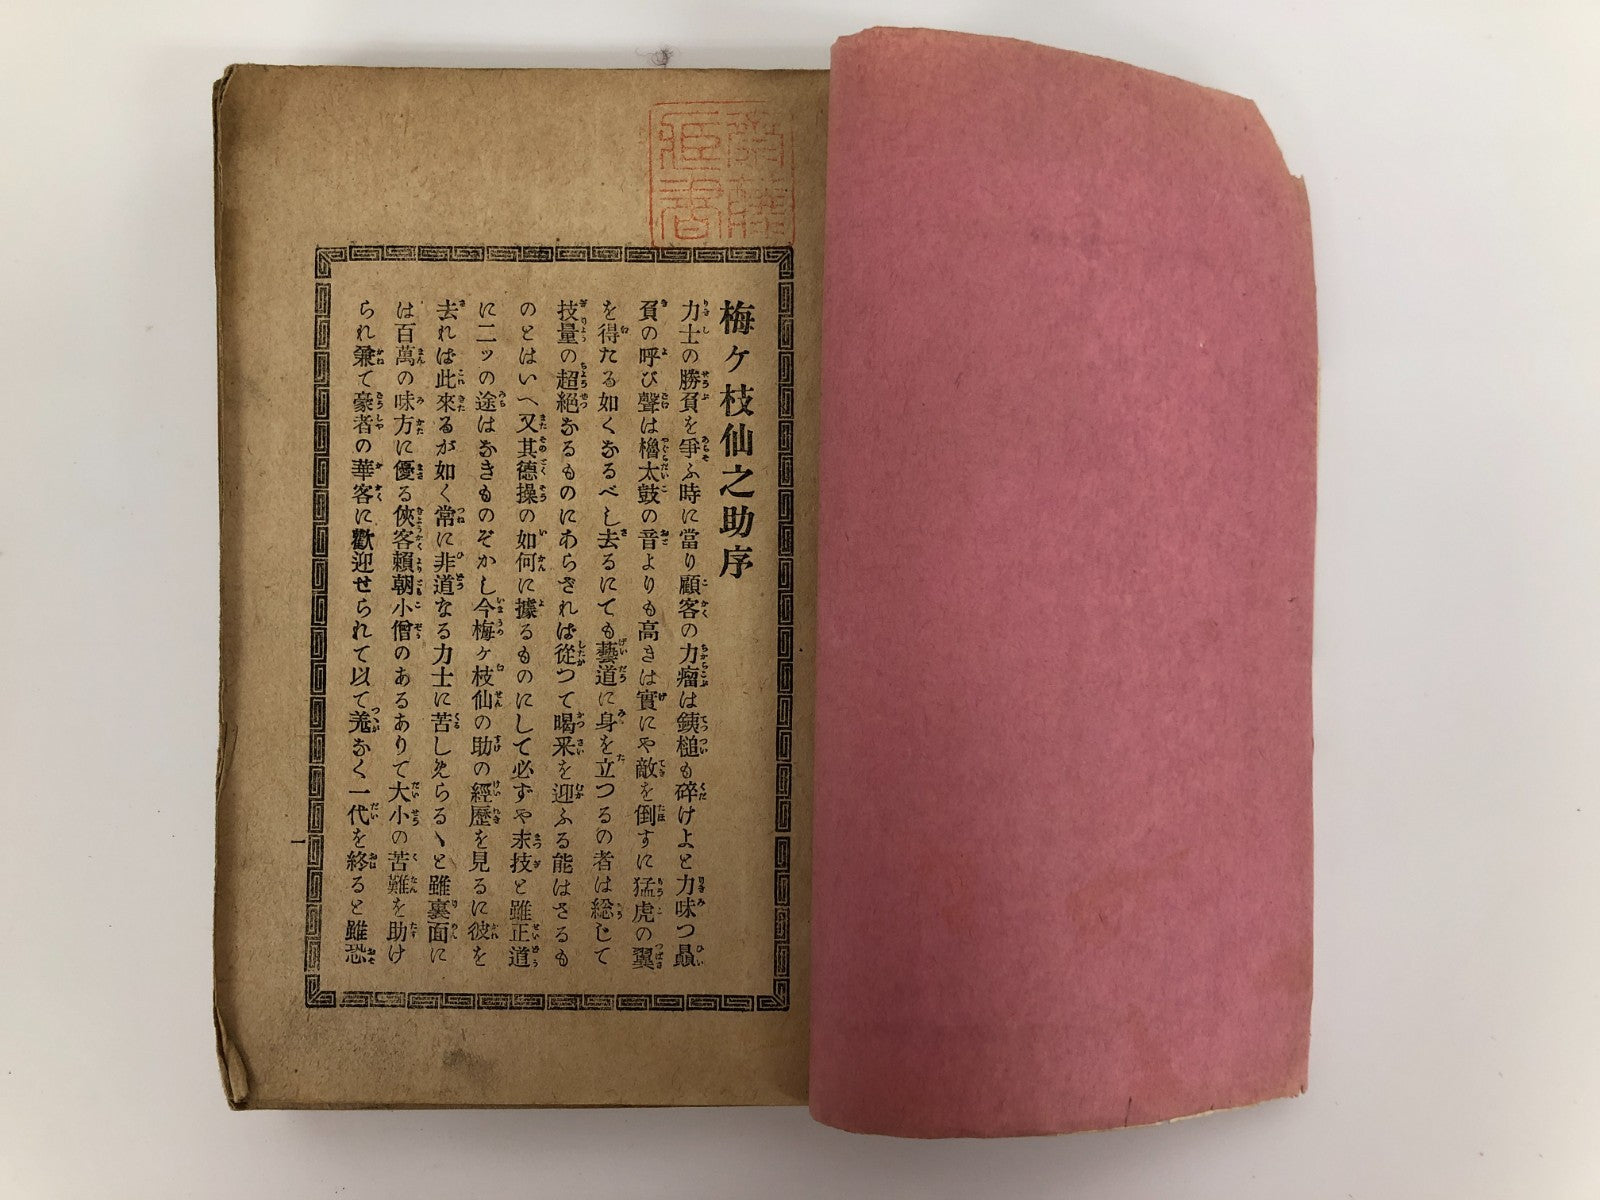 梅ヶ枝仙之助序
力士の勝負を爭ふ時に當り顧客の力瘤は銕槌も碎けよと力味つ贔
負の呼び聲は櫓太鼓の音よりも高きは實にや敵を倒すに猛虎の翼
を得たる如くなるべし去るにても藝道に身を立つるの者は総じて
技量の超絶なるものにあらされば從つて喝采を迎ふる能はさるも
のとはいへ又其德操の如何に據るものにして必ずや末技と雖正道
に二ッの途はなきものぞかし今梅ヶ枝仙の助の經歷を見るに彼を
去れば此來るが如く常に非道なる力士に苦しめらるゝと雖裏面に
は百萬の味方に優る俠客賴朝小僧のあるありて大小の苦難を助け
られ兼て豪者の華客に歡迎せられて以て恙なく一代を終ると雖恐
一